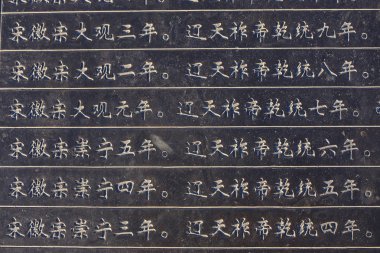 宋徽宗大观三年。辽天祚帝乾统九年。
宋徽宗大观二年。辽天祚帝乾统八年。
宋徽宗大观元年。辽天祚帝乾统七年。
宋徽宗崇宁五年。辽天祚帝乾统六年。
宋徽宗崇宁四年。辽天祚帝乾统五年。
宋徽宗崇宁三年。辽天祚帝乾统四年。